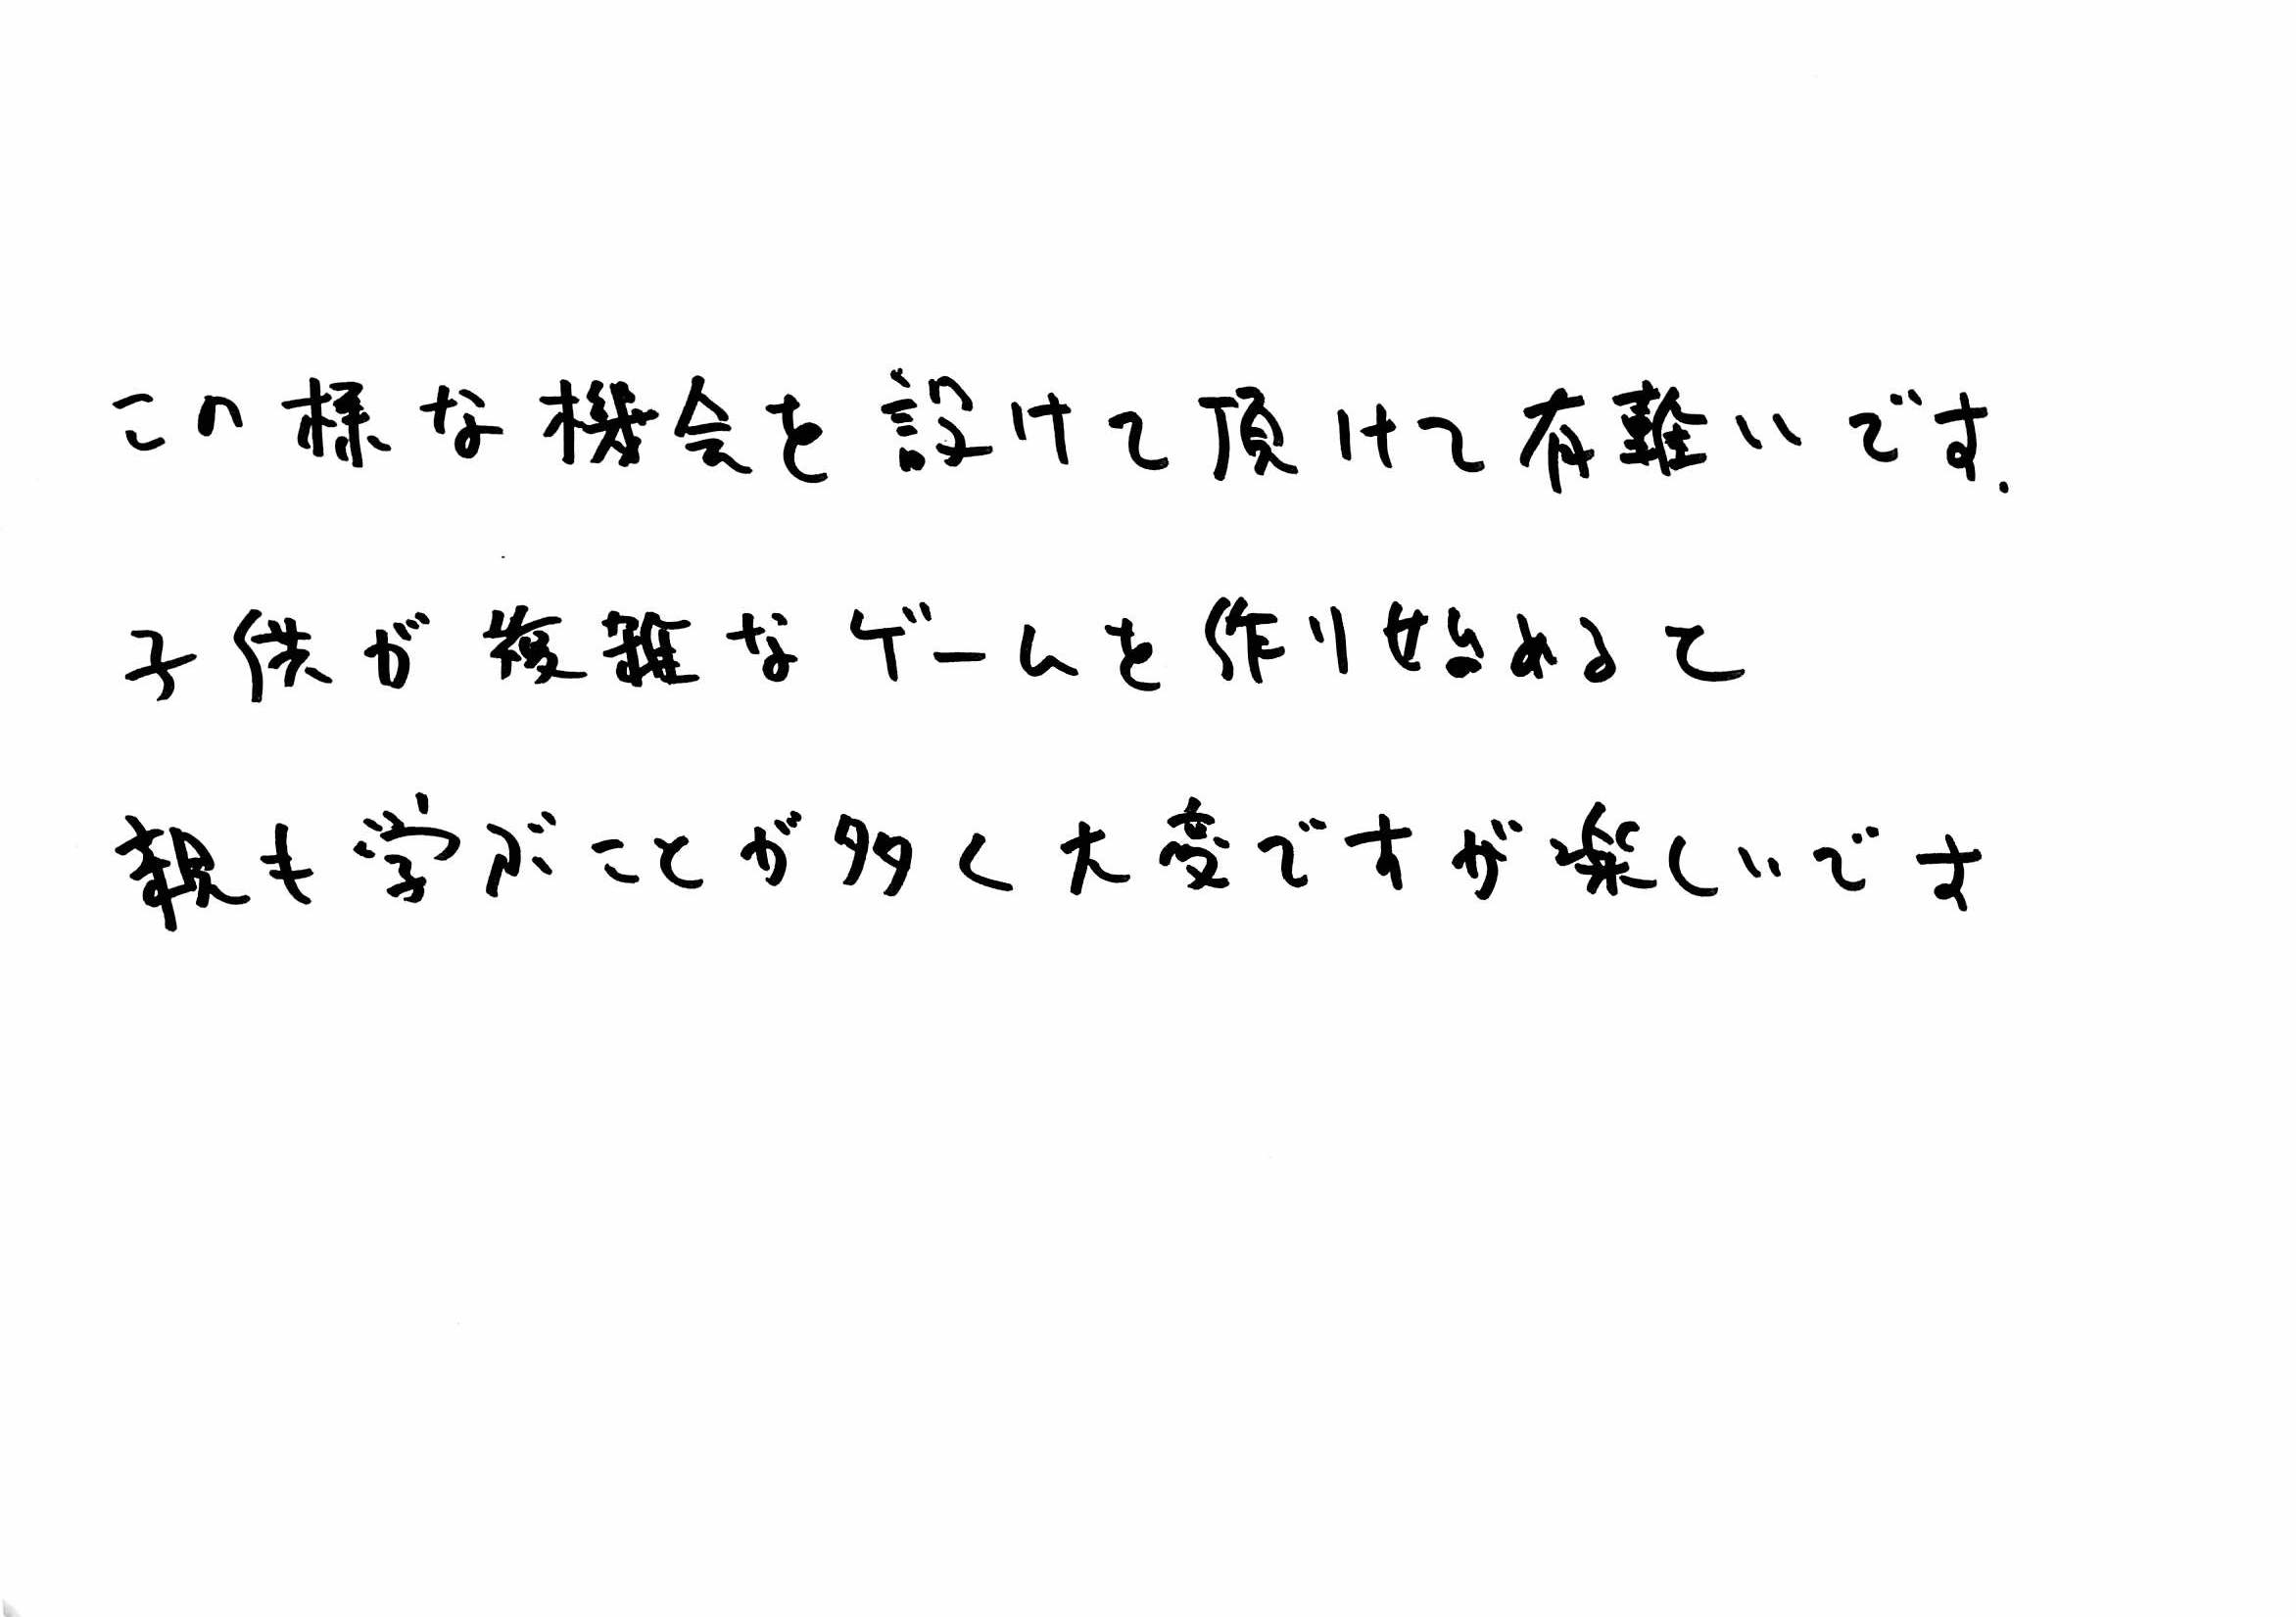 この様な機会を設けて頂けて有難いです.
子供が複雑なゲームを作り始めるて
親も学ぶことが多く大変ですが楽しいです